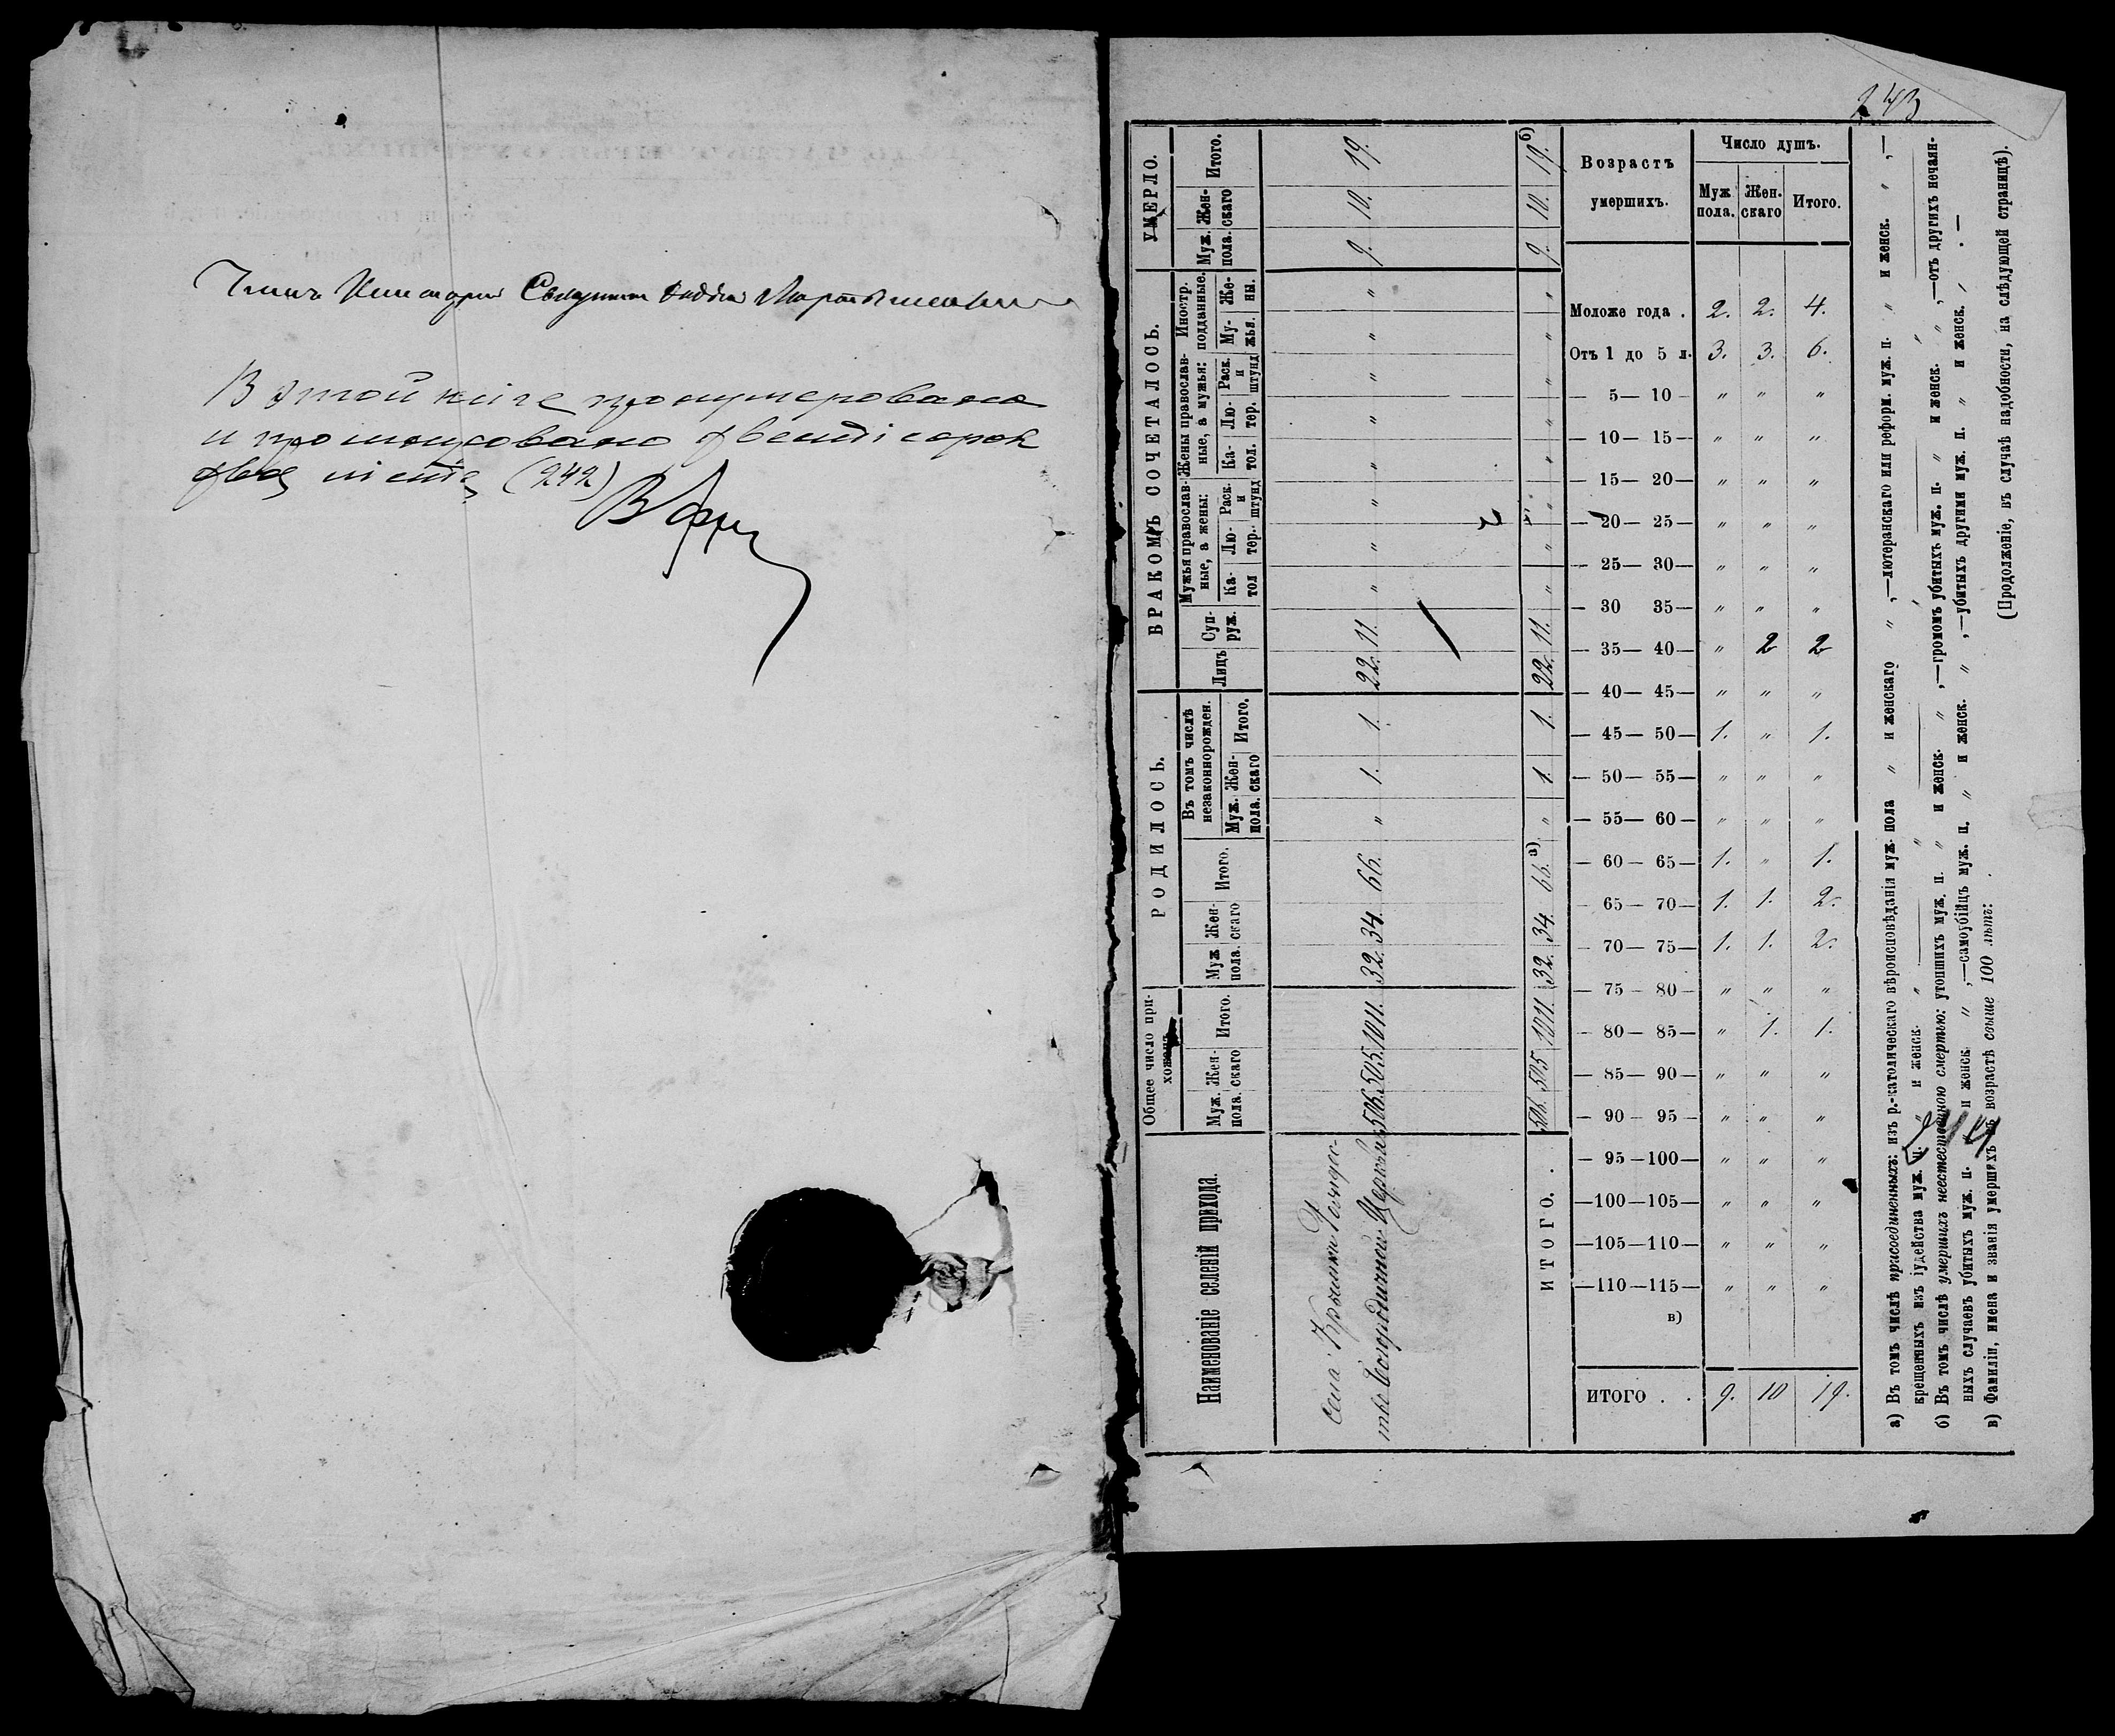 Членъ Консисторіи Священникъ
В этой книге пронумеровано
и прошнуровано двести сорок
два листа (242)
243
Наименованіе селеній прихода.
Общее число прихожанъ.
Муж. пола. Жен-скаго Итого.
РОДИЛОСЬ.
Муж пола. Жен-скаго Итого.
Въ томъ числѣ незаконнорожден.
Муж. пола. Жен-скаго Итого.
БРАКОМЪ СОЧЕТАЛОСЬ.
Лицъ Суп-руж.
Мужья православ-ные, а жены:
Ка-тол Лю-тер. Раск. и штунд
Жены православ-ные, а мужья:
Ка-тол. Лю-тер. Раск. и штунд
Иностр. подданные.
Му-жья. Же-ны.
УМЕРЛО.
Муж. пола. Жен-скаго Итого.
села Крымки Рождес-
тво Богородичной Церкви 506. 505. 1011. 32. 34. 66. „ 1. 1. 22. 11. „ „ „ „ „ „ „ „ 9. 10. 19.
ИТОГО. . 506. 505 1011. 32. 34. 66. а) „ 1. 1. 22. 11. „ „ „ „ „ „ „ „ 9. 10. 19. б)
Возрастъ умершихъ. Число душъ.
Муж пола. Жен. скаго Итого.
Моложе года . 2. 2. 4.
Отъ 1 до 5 л. 3. 3. 6.
— 5— 10 — „ „ „
— 10— 15 — „ „ „
— 15— 20— „ „ „
— 20— 25— „ „ „
— 25— 30— „ „ „
— 30 35— „ „ „
— 35— 40— „ 2 2
— 40— 45— „ „ „
— 45— 50— 1. „ 1.
— 50— 55— „ „ „
— 55— 60— „ „ „
— 60— 65— 1. „ 1.
— 65— 70— 1. 1. 2.
— 70— 75— 1. 1. 2.
— 75 — 80— „ „ „
— 80— 85— „ 1. 1.
— 85— 90— „ „ „
— 90— 95— „ „ „
— 95—100— „ „ „
—100—105— „ „ „
—105—110— „ „ „
—110—115— „ „ „
в)
ИТОГО . . 9. 10 19.
а) Въ томъ числѣ присоединенныхъ: изъ р.-католическаго вѣроисповѣданія муж. пола „ и женскаго „ ,—лютеранскаго или реформ. муж. п. „ и женск. „ ,—
крещенныхъ изъ іудейства муж. п. „ и женск. „
б) Въ томъ числѣ умершихъ неестественою смертью: утопшихъ муж. п. „ и женск. „ ,—громомъ убитыхъ муж. п. „ и женск. „ ,—отъ другихъ нечаян-
ныхъ случаевъ убитыхъ муж. п. „ и женск. „ ,—самоубійцъ муж. п. „ и женск. „ ,—убитыхъ другими муж. п. „ и женск. „ . —
в) Фамиліи, имена и званія умершихъ въ возрастѣ свыше 100 лѣтъ:
(Продолженіе, въ случаѣ надобности, на слѣдующей страницѣ).
244